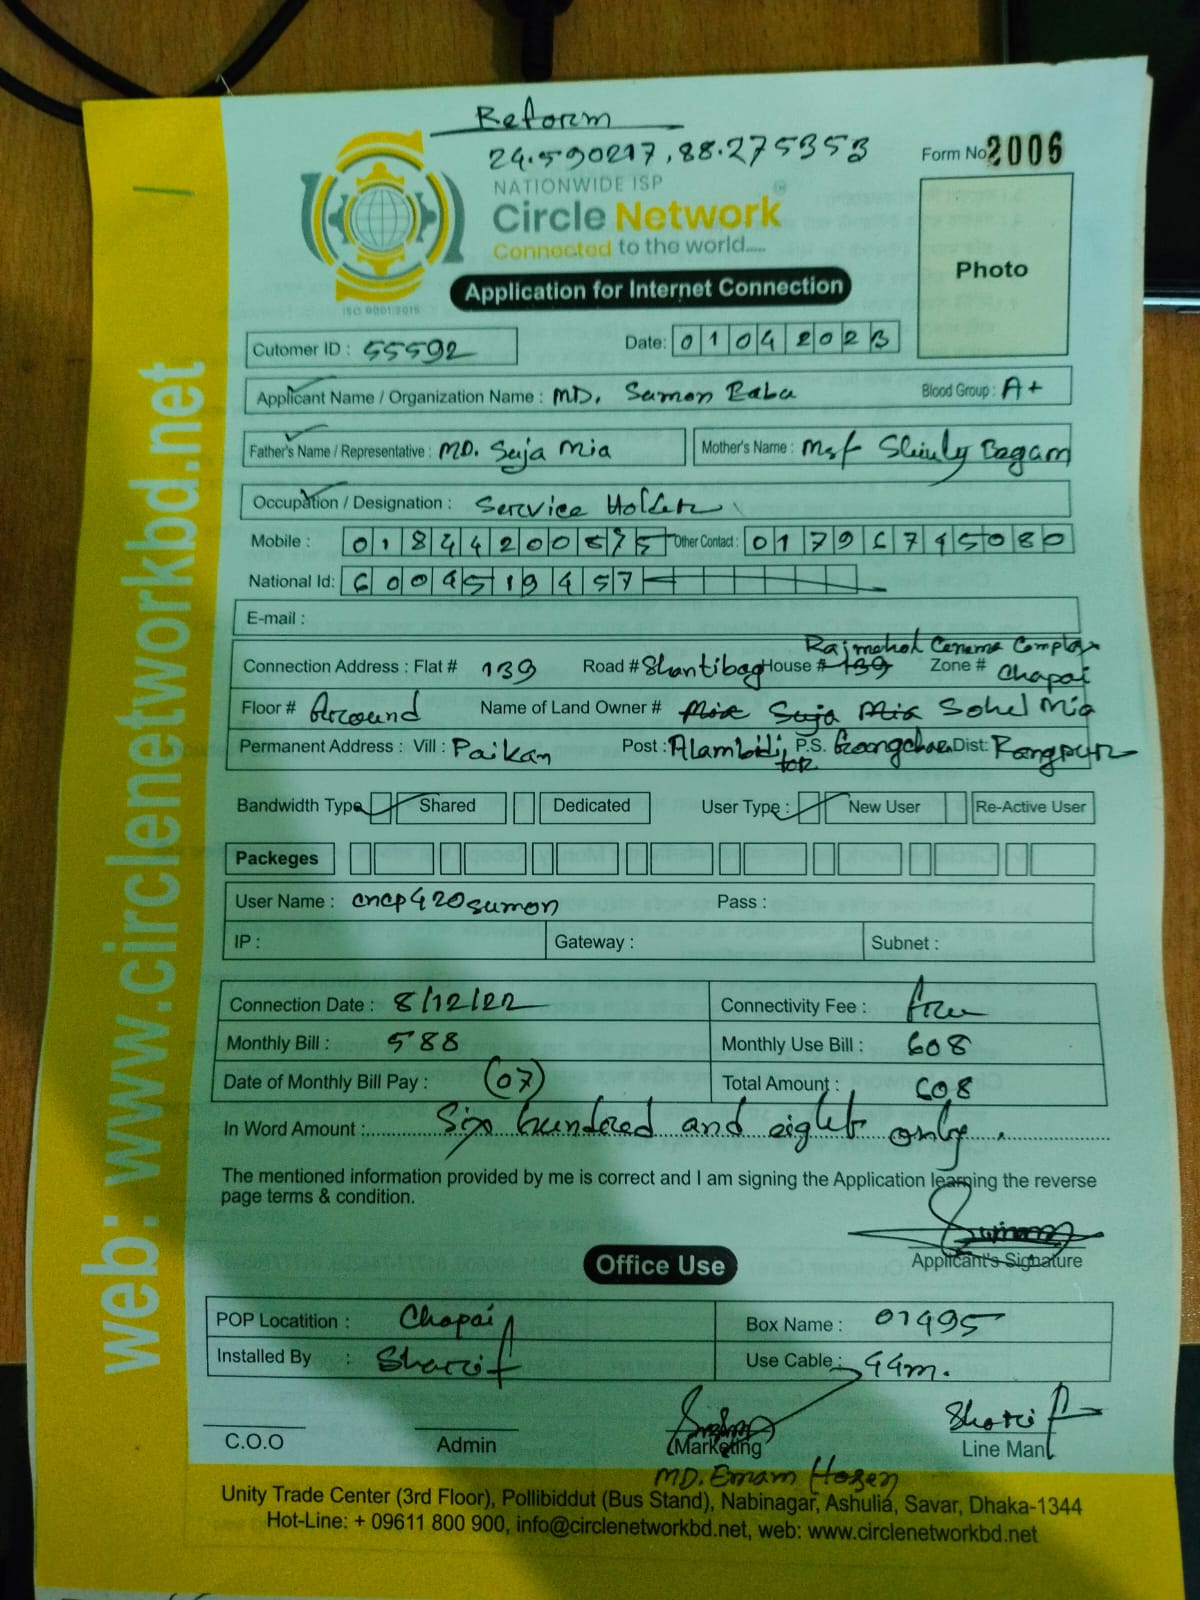 Reform
24.590217, 88.275353
Form No 2006
NATIONWIDE ISP
Circle Network
Connected to the world.....
ISO 9001:2015
Photo
Application for Internet Connection
Cutomer ID : 55592 Date: 01042023
Applicant Name / Organization Name : MD. Sumon Baba Blood Group : A+
Father's Name / Representative : MD. Suja Mia Mother's Name : Mst Shiuly Begam
Occupation / Designation : Service Holder
Mobile : 01844200575 Other Contact : 01796745080
National Id: 6004519457
E-mail :
Rajmohol Cenema Complex
Connection Address : Flat # 139 Road # Shantibag House # 139 Zone # Chapai
Floor # Ground Name of Land Owner # Mia Suja Mia Sohel Mia
Permanent Address : Vill : Paikan Post : Alambiditor P.S. Gongchara Dist: Rangpur
Bandwidth Type Shared Dedicated User Type : New User Re-Active User
Packeges
User Name : cncp420sumon Pass :
IP : Gateway : Subnet :
Connection Date : 8/12/22 Connectivity Fee : free
Monthly Bill : 588 Monthly Use Bill : 608
Date of Monthly Bill Pay : (07) Total Amount : 608
In Word Amount : Six hundred and eight only.
The mentioned information provided by me is correct and I am signing the Application learning the reverse
page terms & condition.
Sumon
Applicant's Signature
Office Use
POP Locatition : Chapai Box Name : 01495
Installed By : Sharif Use Cable : 44m.
Sharif
C.O.O Admin Marketing Line Man
MD. Emam Hosen
Unity Trade Center (3rd Floor), Pollibiddut (Bus Stand), Nabinagar, Ashulia, Savar, Dhaka-1344
Hot-Line: + 09611 800 900, info@circlenetworkbd.net, web: www.circlenetworkbd.net
web: www.circlenetworkbd.net